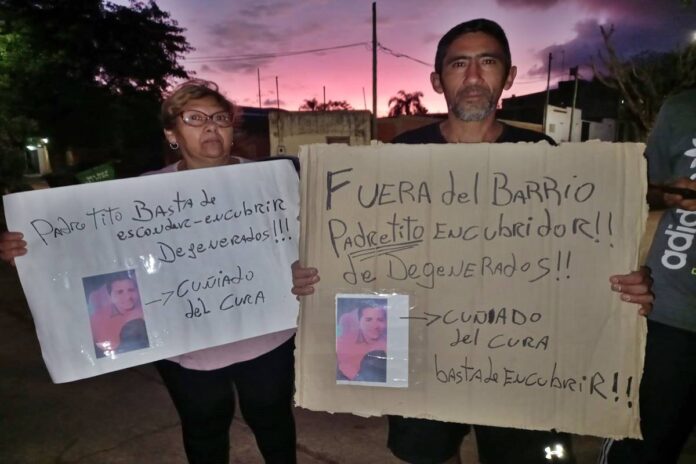 Padre Tito Basta de
esconder-encubrir
Degenerados!!!
Cuñiado
del Cura
Fuera del Barrio
Padre Tito encubridor!!
de Degenerados!!
Cuñiado
del Cura
basta de encubrir!!
adidas